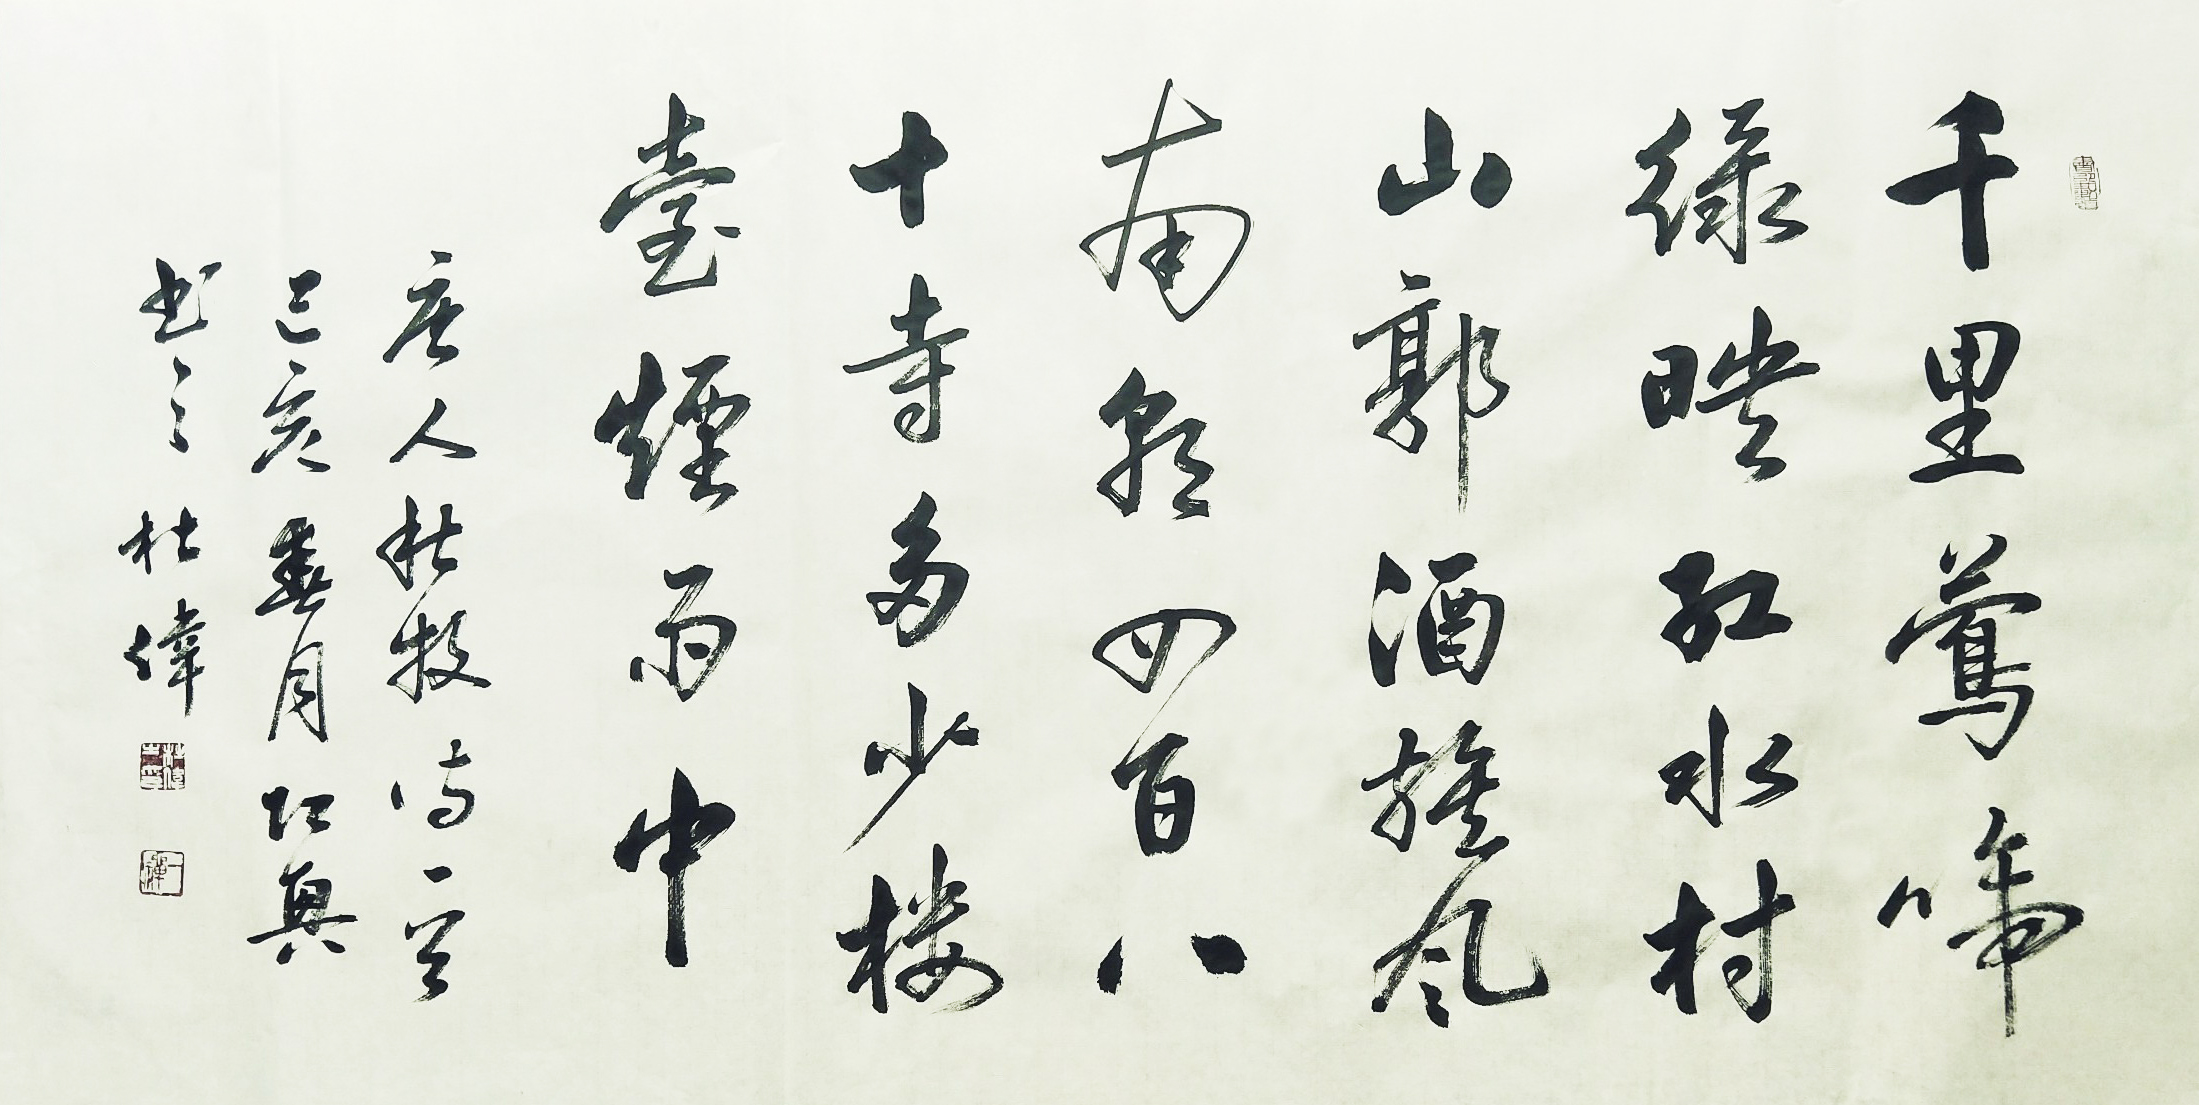 千里鶯啼
绿映红水村
山郭酒旗风
南朝四百八
十寺多少楼
臺煙雨中
唐人杜牧诗一首
己亥春月
书之杜偉